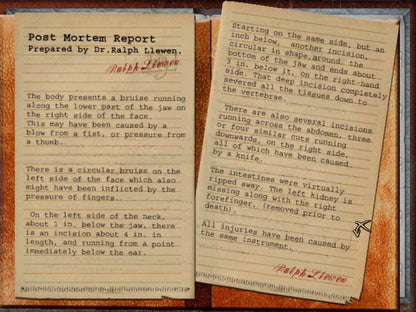 Post Mortem Report
Prepared by Dr.Ralph Llewen.
Ralph Llewen
The body presents a bruise running
along the lower part of the jaw on
the right side of the face.
This may have been caused by a
blow from a fist, or pressure from
a thumb.
There is a circular bruise on the
left side of the face which also
might have been inflicted by the
pressure of fingers.
On the left side of the neck,
about 1 in. below the jaw, there
is an incision about 4 in. in
length, and running from a point
immediately below the ear.
Starting on the same side, but an
inch below, another incision,
circular in shape,around the
bottom of the jaw and ends about
3 in. below it, on the right hand
side. That deep incision completely
severed all the tissues down to
the vertebrae.
There are also several incisions
running across the abdomen, three
or four similar cuts running
downwards, on the right side,
all of which have been caused
by a knife.
The intestines were virtually
ripped away. The left kidney is
missing along with the right
forefinger, (removed prior to
death).
All injuries have been caused by
the same instrument.
Ralph Llewen